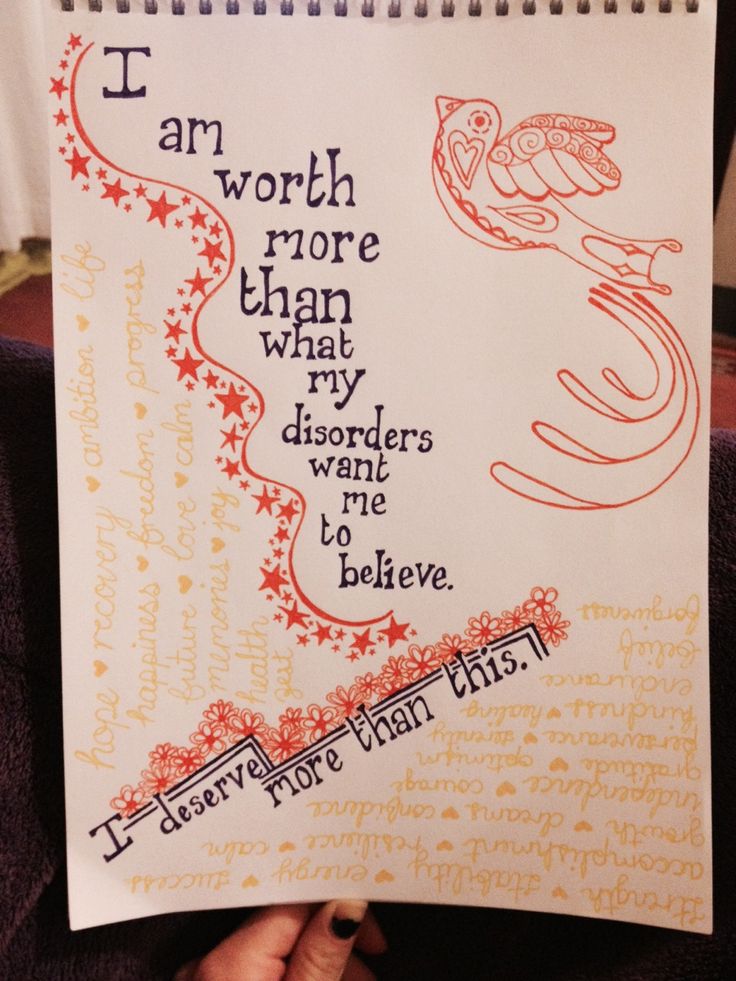 I
am
worth
more
than
what
my
disorders
want
me
to
believe.
I deserve more than this.
hope ♥ recovery ♥ ambition ♥ life
happiness ♥ freedom ♥ progress
future ♥ love ♥ calm
memories ♥ joy
health
zest
Strength ♥ stability ♥ energy ♥ success
accomplishment ♥ resilience ♥ calm
growth ♥ dreams ♥ confidence
independence ♥ courage
gratitude ♥ optimism
perseverance ♥ serenity
kindness ♥ healing
endurance
belief
forgiveness